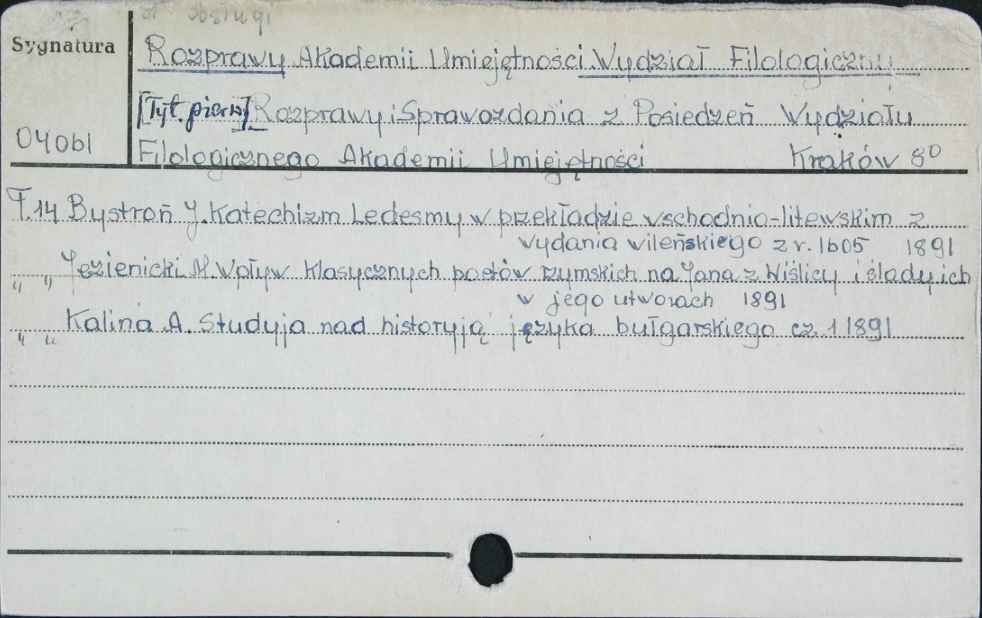 Sygnatura
Rozprawy Akademii Umiejętności Wydział Filologiczny
[Tyt. pierw] Rozprawy i Sprawozdania z Posiedzeń Wydziału
04061
Filologicznego Akademii Umiejętności Kraków 8°
T.14 Bystroń J. Katechizm Ledesmy w przekładzie wschodnio-litewskim z
wydania wileńskiego z r. 1605 1891
" " Jezienicki M. Wpływ klasycznych poetów rzymskich na Jana z Wiślicy i ślady ich
w jego utworach 1891
" " Kalina A. Studyja nad historyją języka bułgarskiego cz. 1 1891